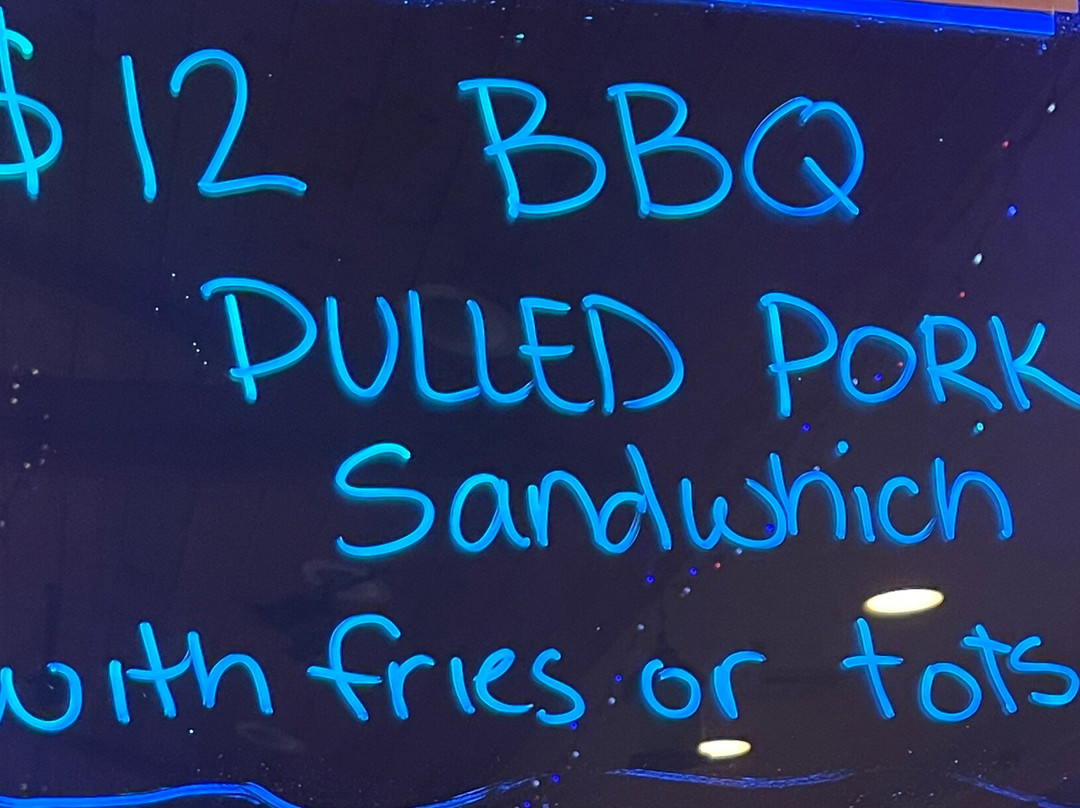 $12 BBQ
PULLED PORK
Sandwhich
with fries or tots